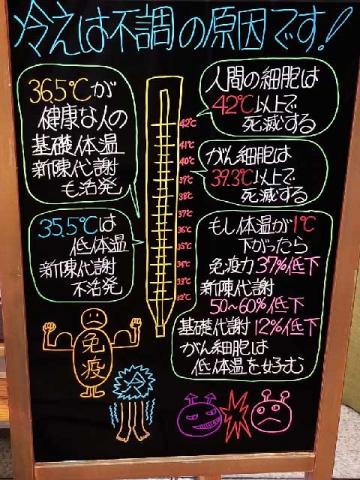 冷えは不調の原因です!
36.5℃が
健康な人の
基礎体温
新陳代謝
も活発
35.5℃は
低体温
新陳代謝
不活発
42℃
41℃
40℃
39℃
38℃
37℃
36℃
35℃
34℃
33℃
32℃
人間の細胞は
42℃以上で
死滅する
がん細胞は
39.3℃以上で
死滅する
もし体温が1℃
下がったら
免疫力37%低下
新陳代謝
50~60%低下
基礎代謝12%低下
がん細胞は
低体温を好む
免疫
冷